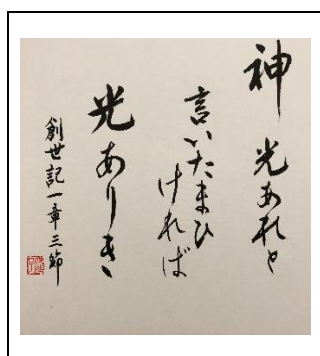 神 光あれと
言いたまひ
ければ
光ありき
創世記一章三節